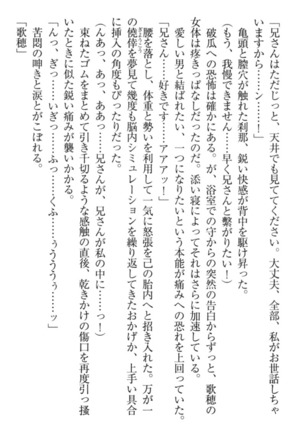 「兄さんはただじっと、天井でも見ててください。大丈夫、全部、私がお世話しちゃ
いますから……ンー……！」
亀頭と膣穴が触れた刹那、鋭い快感が背中を駆け昇った。
(もう、我慢できません……早く兄さんと繋がりたい！)
破瓜への恐怖は確かにある。が、浴室での守からの突然の告白からずっと、歌穂の
女体は疼きっぱなしだったのだ。添い寝によってそれはさらに加速している。
愛しい男と結ばれたい、一つになりたいという本能が痛みへの恐れを上回っていた。
「兄さん……好きです……アアアッ！」
腰を落とし、体重と勢いを利用して一気に怒張を己の胎内へと招き入れた。万が一
の僥倖を夢見て幾度も脳内シミュレーションを繰り返してきたおかげか、上手い具合
に挿入の角度もぴったりだった。
(んあっ、あっ、ああっ……兄さんが、兄さんが私の中に……っ！)
束ねたゴムをまとめて引き千切るような感触の直後、乾きかけの傷口を再度引っ掻
いたときに似た鋭い痛みが襲いかかる。
「んっ、ぎっ……いぎっ……ふっ……くふ……ぅううぅぅ……ッ」
苦悶の呻きと涙とがこぼれる。
「歌穂」